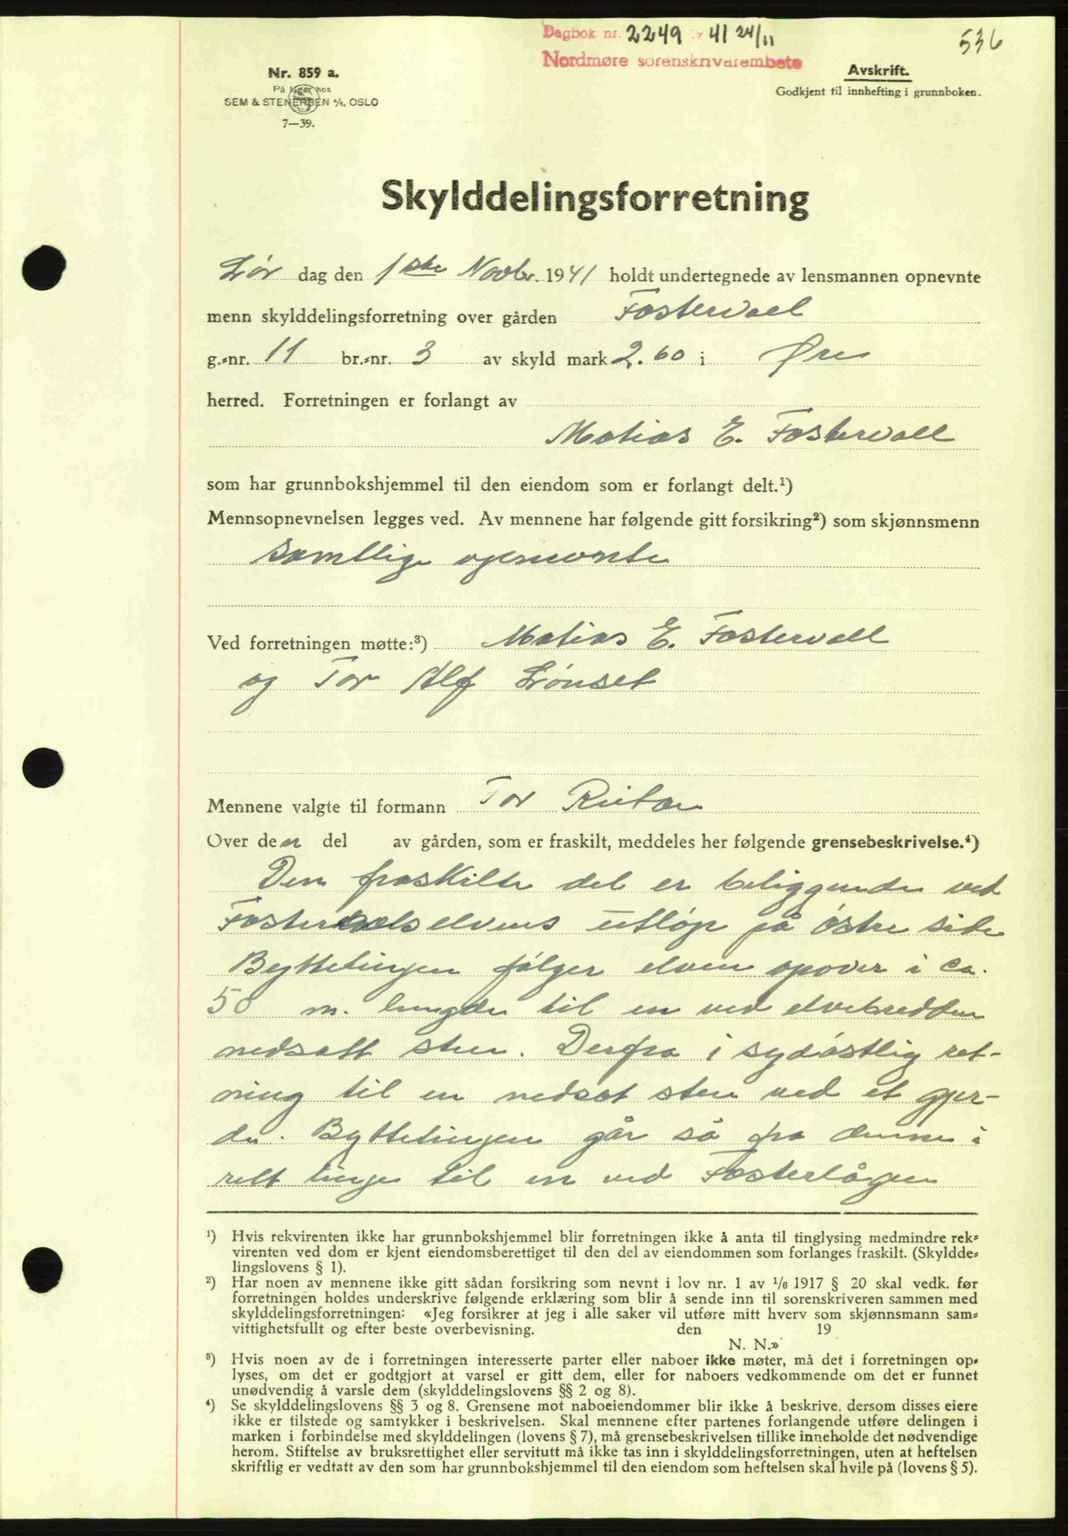 Dagbok nr. 2249 41 24/11
536
Nordmøre sorenskriverembete
Nr. 859 a.
På lager hos
SEM & STENERSEN A/S, OSLO
7—39.
Avskrift.
Godkjent til innhefting i grunnboken.
Skylddelingsforretning
Lør dag den 1ste Novbr. 1941 holdt undertegnede av lensmannen opnevnte
menn skylddelingsforretning over gården Fostervoll
g.-nr. 11 br.-nr. 3 av skyld mark 2.60 i Øre
herred. Forretningen er forlangt av
Matias E. Fostervoll
som har grunnbokshjemmel til den eiendom som er forlangt delt.¹)
Mennsopnevnelsen legges ved. Av mennene har følgende gitt forsikring²) som skjønnsmenn
samtlige opnevnte
Ved forretningen møtte:³) Matias E. Fostervoll
og Tor Alf Lønset
Mennene valgte til formann Tor
Over den del av gården, som er fraskilt, meddeles her følgende grensebeskrivelse.⁴)
Den fraskilte del er beliggende ved
elvens utløp på østre side
Byttelinjen følger elven opover i ca.
50 m. lengde til en ved elvebredden
nedsatt sten. Derfra i sydøstlig ret-
ning til en nedsat sten ved et gjer-
de. Byttelinjen går så fra denne i
rett linje til en ved Fosterlågen
¹) Hvis rekvirenten ikke har grunnbokshjemmel blir forretningen ikke å anta til tinglysing medmindre rek-
virenten ved dom er kjent eiendomsberettiget til den del av eiendommen som forlanges fraskilt. (Skyldde-
lingslovens § 1).
²) Har noen av mennene ikke gitt sådan forsikring som nevnt i lov nr. 1 av 1/6 1917 § 20 skal vedk. før
forretningen holdes underskrive følgende erklæring som blir å sende inn til sorenskriveren sammen med
skylddelingsforretningen: «Jeg forsikrer at jeg i alle saker vil utføre mitt hverv som skjønnsmann sam-
vittighetsfullt og efter beste overbevisning. den 19
N. N.»
³) Hvis noen av de i forretningen interesserte parter eller naboer ikke møter, må det i forretningen op-
lyses, om det er godtgjort at varsel er gitt dem, eller for naboers vedkommende om det er funnet
unødvendig å varsle dem (skylddelingslovens §§ 2 og 8).
⁴) Se skylddelingslovens §§ 3 og 8. Grensene mot naboeiendommer blir ikke å beskrive, dersom disses eiere
ikke er tilstede og samtykker i beskrivelsen. Skal mennene efter partenes forlangende utføre delingen i
marken i forbindelse med skylddelingen (lovens § 7), må grensebeskrivelsen tillike inneholde det nødvendige
herom. Stiftelse av bruksrettighet eller servitutt må ikke tas inn i skylddelingsforretningen, uten at heftelsen
skriftlig er vedtatt av den som har grunnbokshjemmel til den eiendom som heftelsen skal hvile på (lovens § 5).